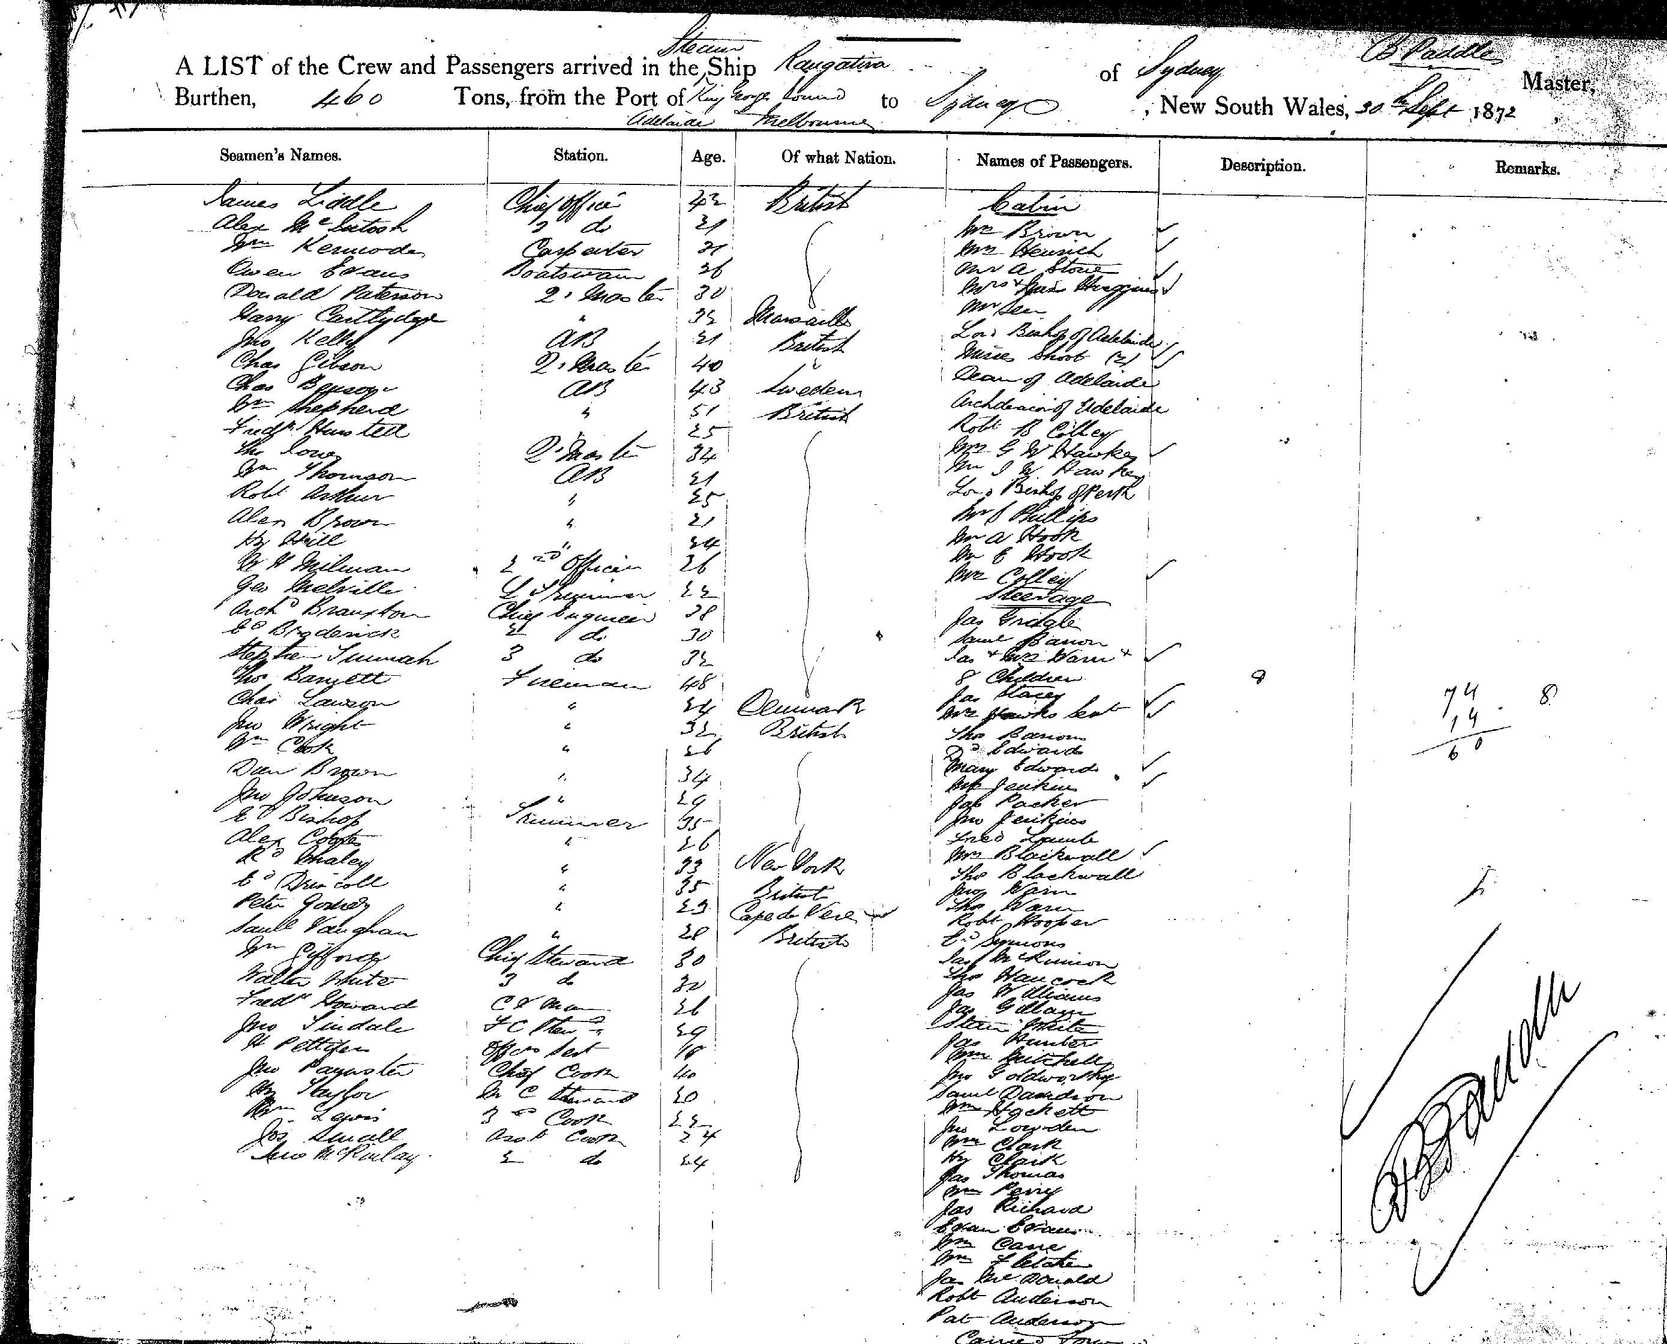 Steam
A LIST of the Crew and Passengers arrived in the Ship Rangatira of Sydney B Paddle Master,
Burthen, 460 Tons, from the Port of King George Sound to Sydney, New South Wales, 30th Sept 1872
Adelaide Melbourne
Seamen's Names. Station. Age. Of what Nation. Names of Passengers. Description. Remarks.
James Liddle Chief Officer 42 British Cabin
Alex McIntosh 3 do 21 Mr Brown
Wm Kermode Carpenter 21 Mrs Heinrich
Owen Evans Boatswain 26 Mr A Stone
Donald Paterson Q. Master 30 Mrs & Miss Huggins
Harry Cartlydge " 32 Marsailles Mr Sen
Jno Kelly AB 21 British Lord Bishop of Adelaide
Chas Gibson Q. Master 40 " Misses Short (2)
Chas Benson AB 43 Sweden Dean of Adelaide
Wm Shepherd " 51 British Archdeacon of Adelaide
Fredk " 25 Robt B Colley
Tho Jones Q. Master 34 Mrs G W Hawkes
Wm Thomson AB 21 Mr J W Hawkes
Robt Arthur " 25 Lord Bishop of Perth
Alex Brown " 21 Mr J Phillips
Hy Hill " 24 Mr A Hook
W H Milman 2nd Officer 26 Mr E Hook
Geo Melville 22 Mrs Colley
Archd Braunton Chief Engineer 38 Steerage
Ed Broderick 2 do 30 Jas Gridgle
Stephen 3 do 32 Saml Barron
Tho Barnett Fireman 48 Jas & Mrs Warn &
Chas Lawson " 24 Denmark 8 Children 8
Jno Wright " 32 British Jas Stacey 74 8
Wm Cook " 26 Mrs Hawks Sert 14
Dan Brown " 34 Tho Barrons 60
Jno Johnson " 29 Do Edwards
Ed Bishop Trimmer 35 Mary Edwards
Alex Coates " 26 Mrs Jenkins
Rd Whaley " 33 New York Jas Packer
Ed Driscoll " 35 British Jno Jenkins
Peter Gomes " 23 Cape de Verd Fred Lamb
Saml Vaughan " 28 British Mrs Blackwall
Wm Gifford Chief Steward 30 Tho Blackwall
Walter White 3 do 32 Jno Warn
Fredk Howard 26 Tho Warn
Jno Tindale 29 Robt Hooper
H Pettifer Officers Sert 18 Ed Simmons
Jno Paynster Chief Cook 40 Jas McKinnon
Hy Taylor 20 Tho Hancock
Wm Lewis 3rd Cook 22 Jas Williams
Jos Small Asst Cook 24 Jas Gillam
Jno McKinlay 2 do 24 White
Jas Hunter
Wm Mitchell
Jno Goldworthy
Saml Davidson
Wm Hackett
Jno Lowden
Wm Clark
Hy Clark
Jas Thomas
Wm Perry
Jas Richard
Evan Evans
Wm Cane
Wm Fletcher
Jas McDonald
Robt Anderson
Pat Anderson
B Paddle